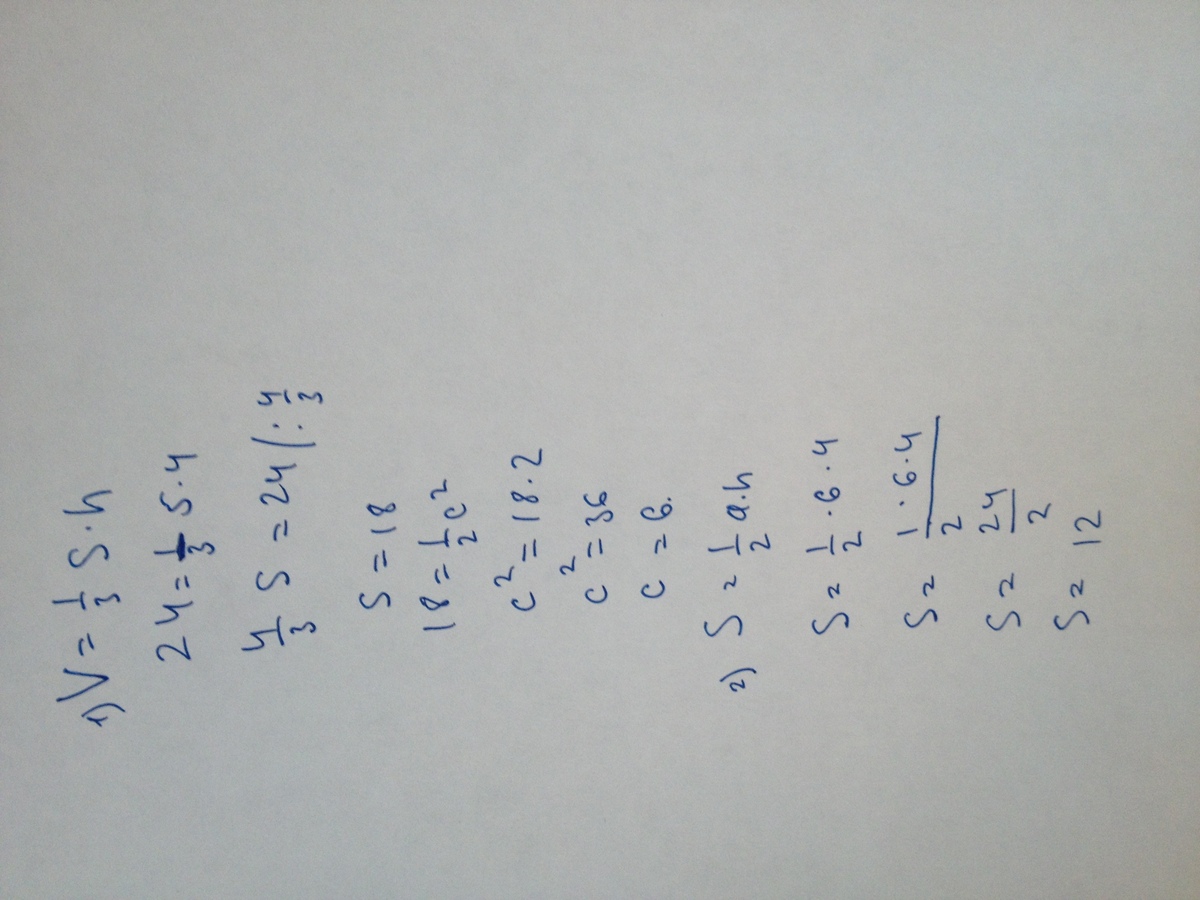 1) V = 1/3 S · h
24 = 1/3 S · 4
4/3 S = 24 | : 4/3
S = 18
18 = 1/2 c²
c² = 18 . 2
c² = 36
c = 6.
2) S = 1/2 a . h
S = 1/2 · 6 · 4
S = 1 · 6 · 4 / 2
S = 24 / 2
S = 12